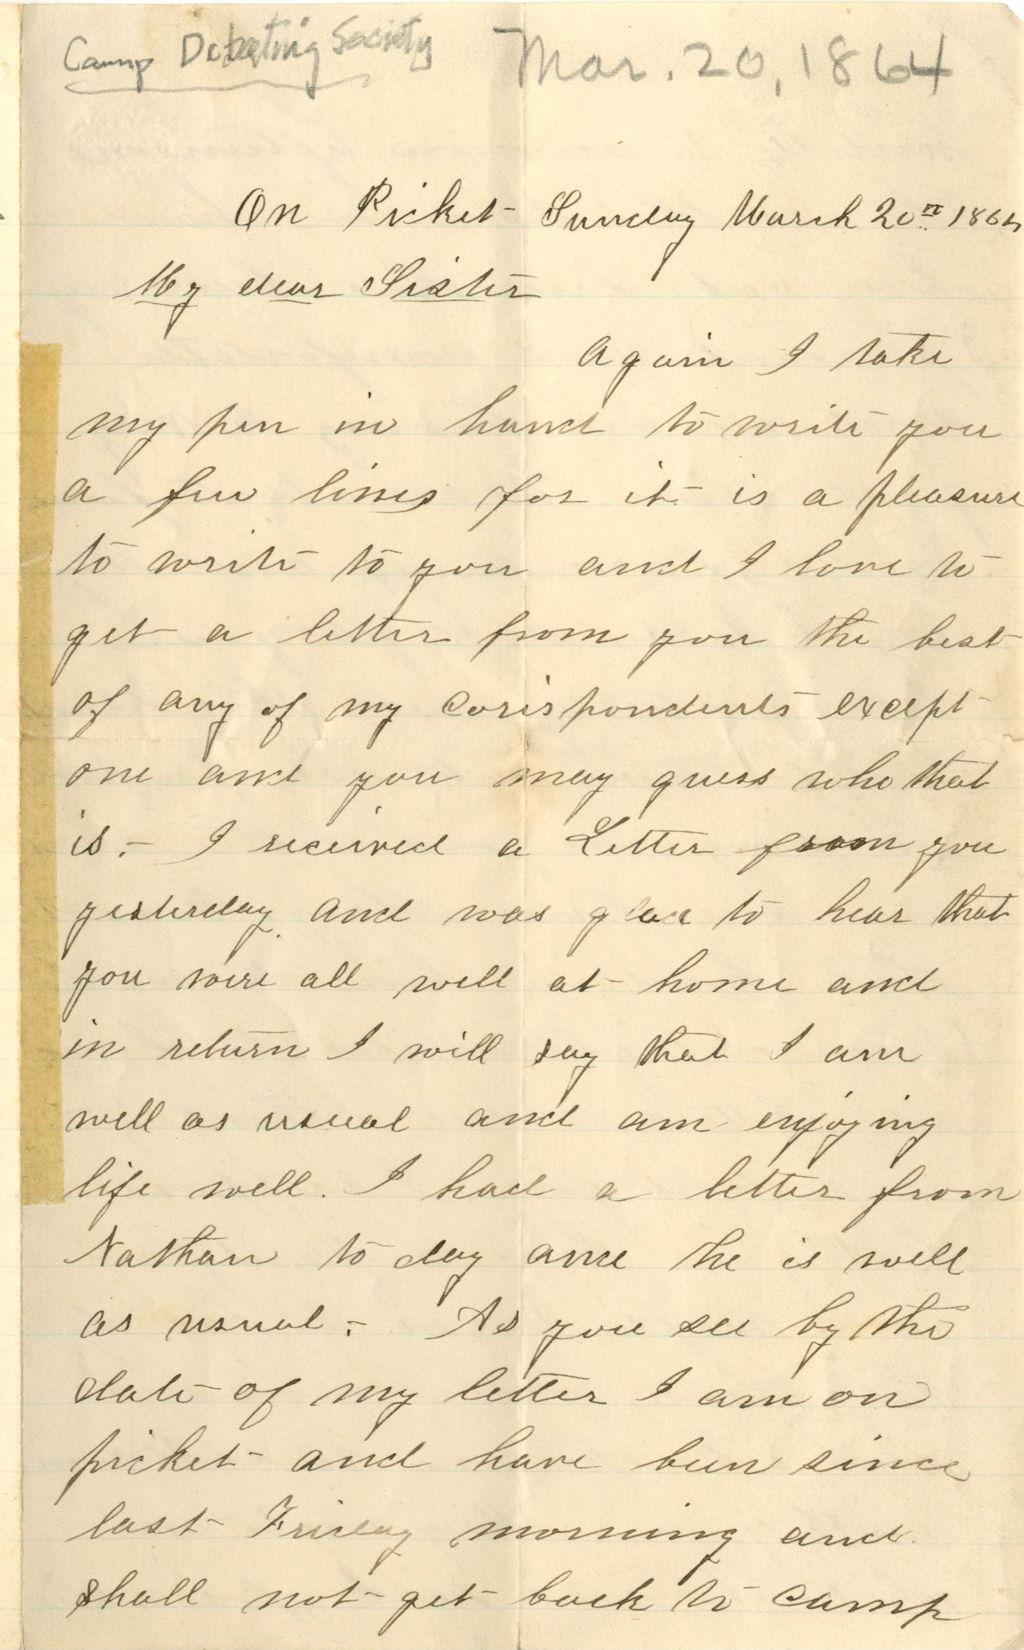 Camp Debating Society Mar. 20, 1864
On Picket Sunday March 20th 1864
My dear Sister
Again I take
my pen in hand to write you
a few lines for it is a pleasure
to write to you and I love to
get a letter from you the best
of any of my corispondents except
one and you may guess who that
is. - I received a Letter from you
yesterday and was glad to hear that
you were all well at home and
in return I will say that I am
well as usual and am enjoying
life well. I had a letter from
Nathan to day and he is well
as usual. - As you see by the
date of my letter I am on
picket and have been since
last Friday morning and
shall not get back to camp